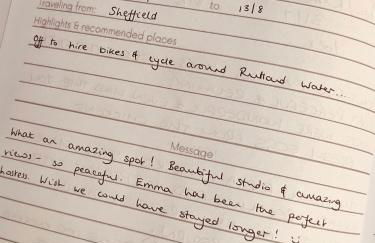 Traveling from: Sheffield to 13/8
Highlights & recommended places
Off to hire bikes & cycle around Rutland Water...
Message
What an amazing spot! Beautiful studio & amazing
views - so peaceful. Emma has been the perfect
hostess. Wish we could have stayed longer! :)